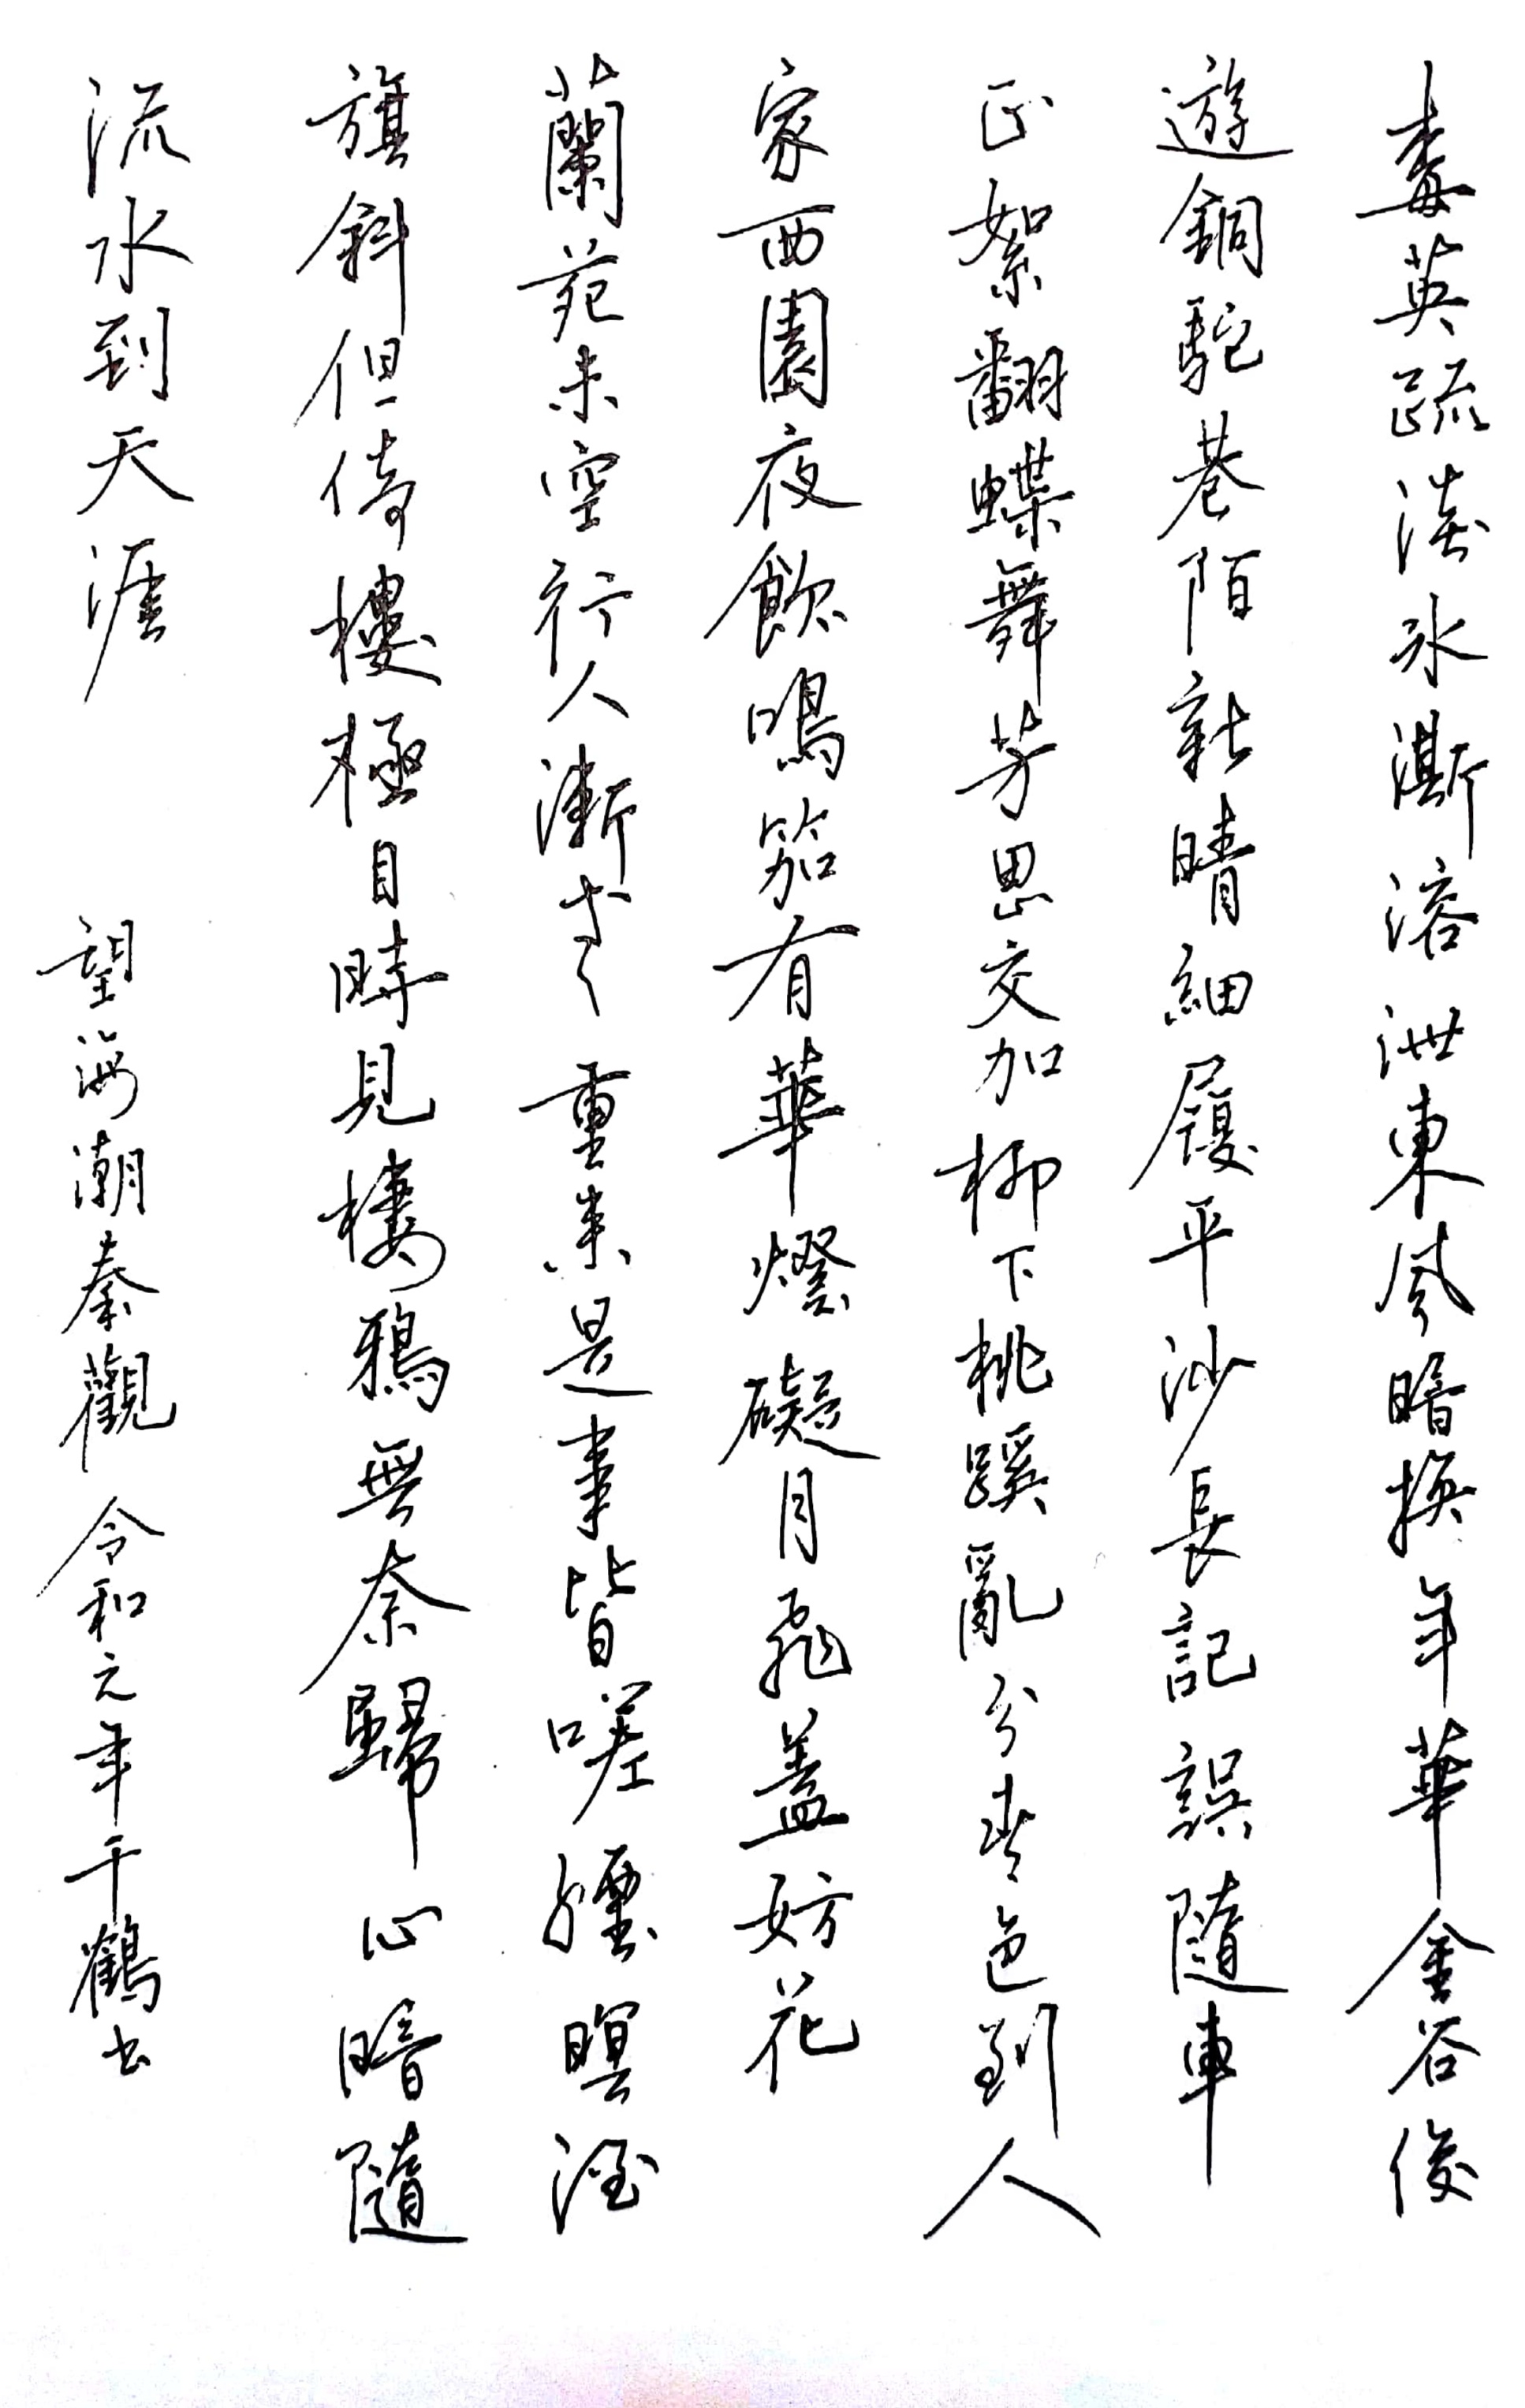 梅英疏淡冰澌溶泄東風暗換年華金谷俊
遊銅駝巷陌新晴細履平沙長記誤隨車
正絮翻蝶舞芳思交加柳下桃蹊亂分春色到人
家西園夜飲鳴笳有華燈礙月飛蓋妨花
蘭苑未空行人漸老重来是事皆嗟煙暝酒
旗斜但倚樓極目時見棲鴉無奈歸心暗隨
流水到天涯
望海潮秦觀 令和元年千鶴書